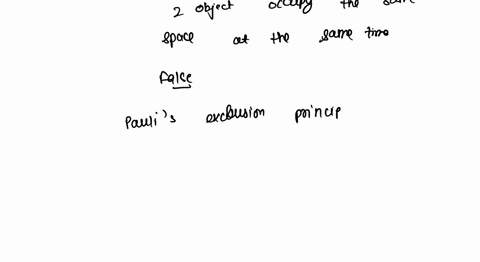 2 object occupy the same
space at the same time
False
Pauli's exclusion princip